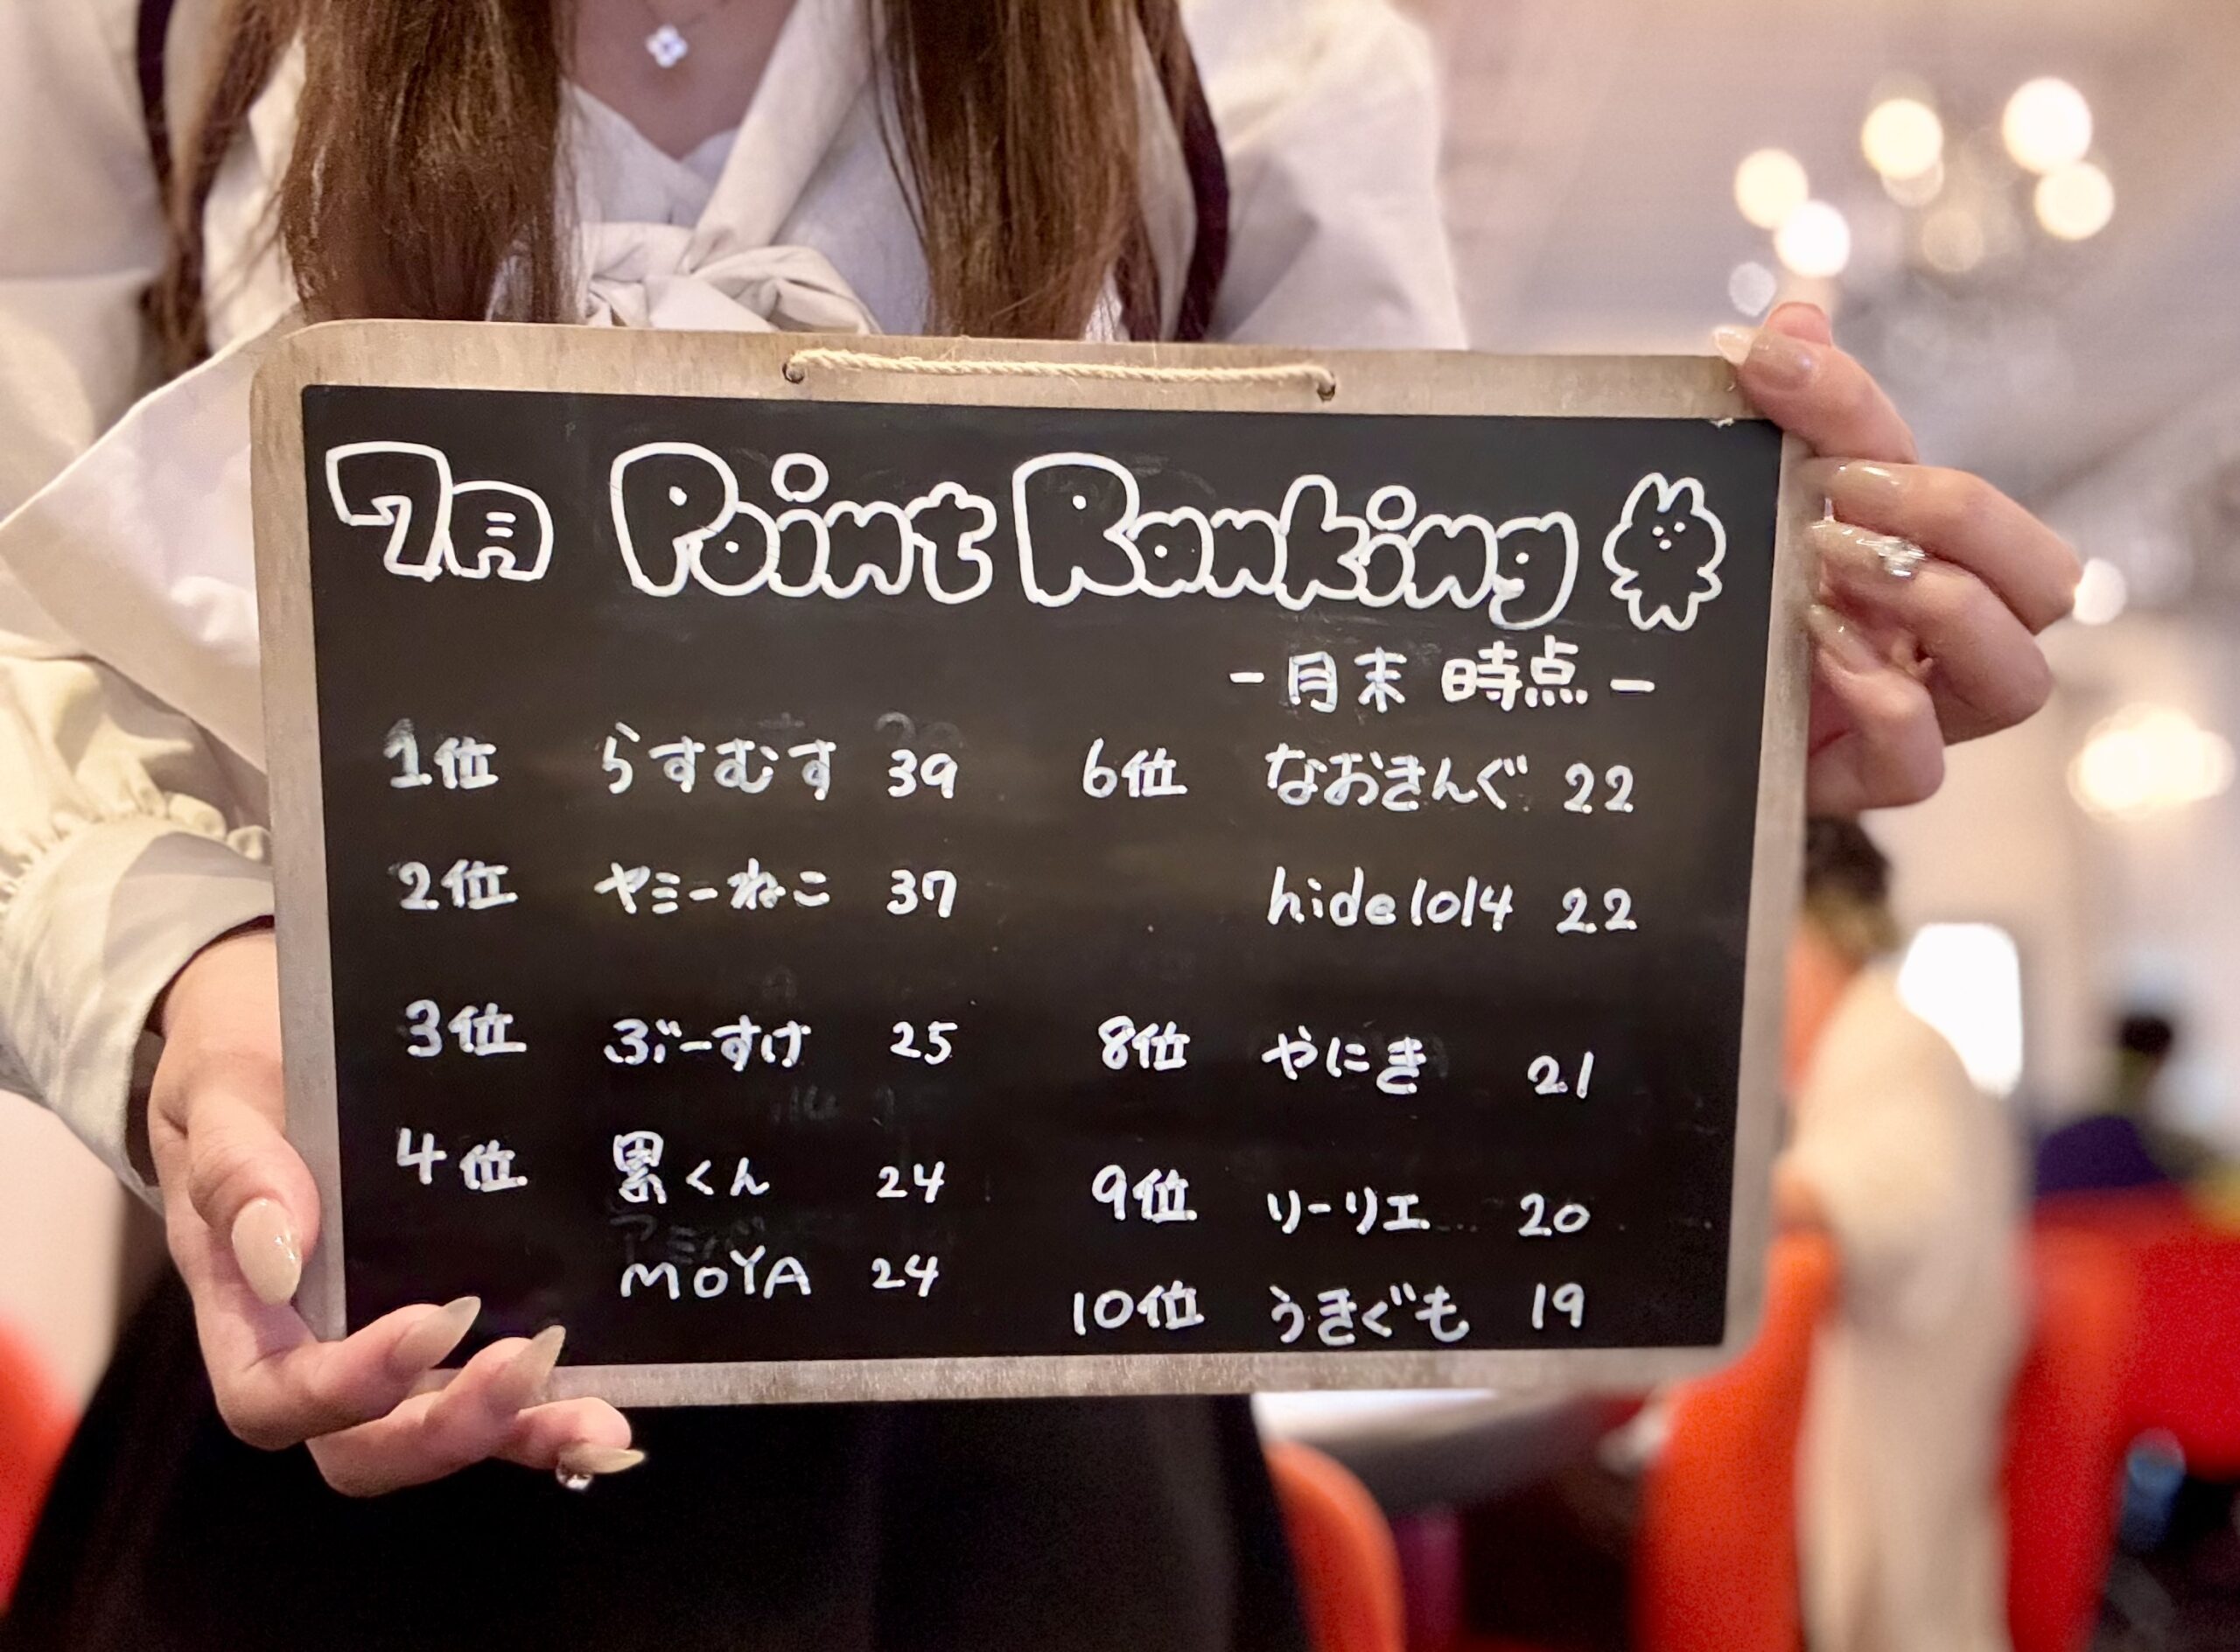 7月 Point Ranking
-月末 時点-
1位 らすむす 39
2位 ヤミーねこ 37
3位 ぶーすけ 25
4位 累くん 24
MOYA 24
6位 なおきんぐ 22
hide1014 22
8位 やにき 21
9位 リーリエ 20
10位 うきぐも 19